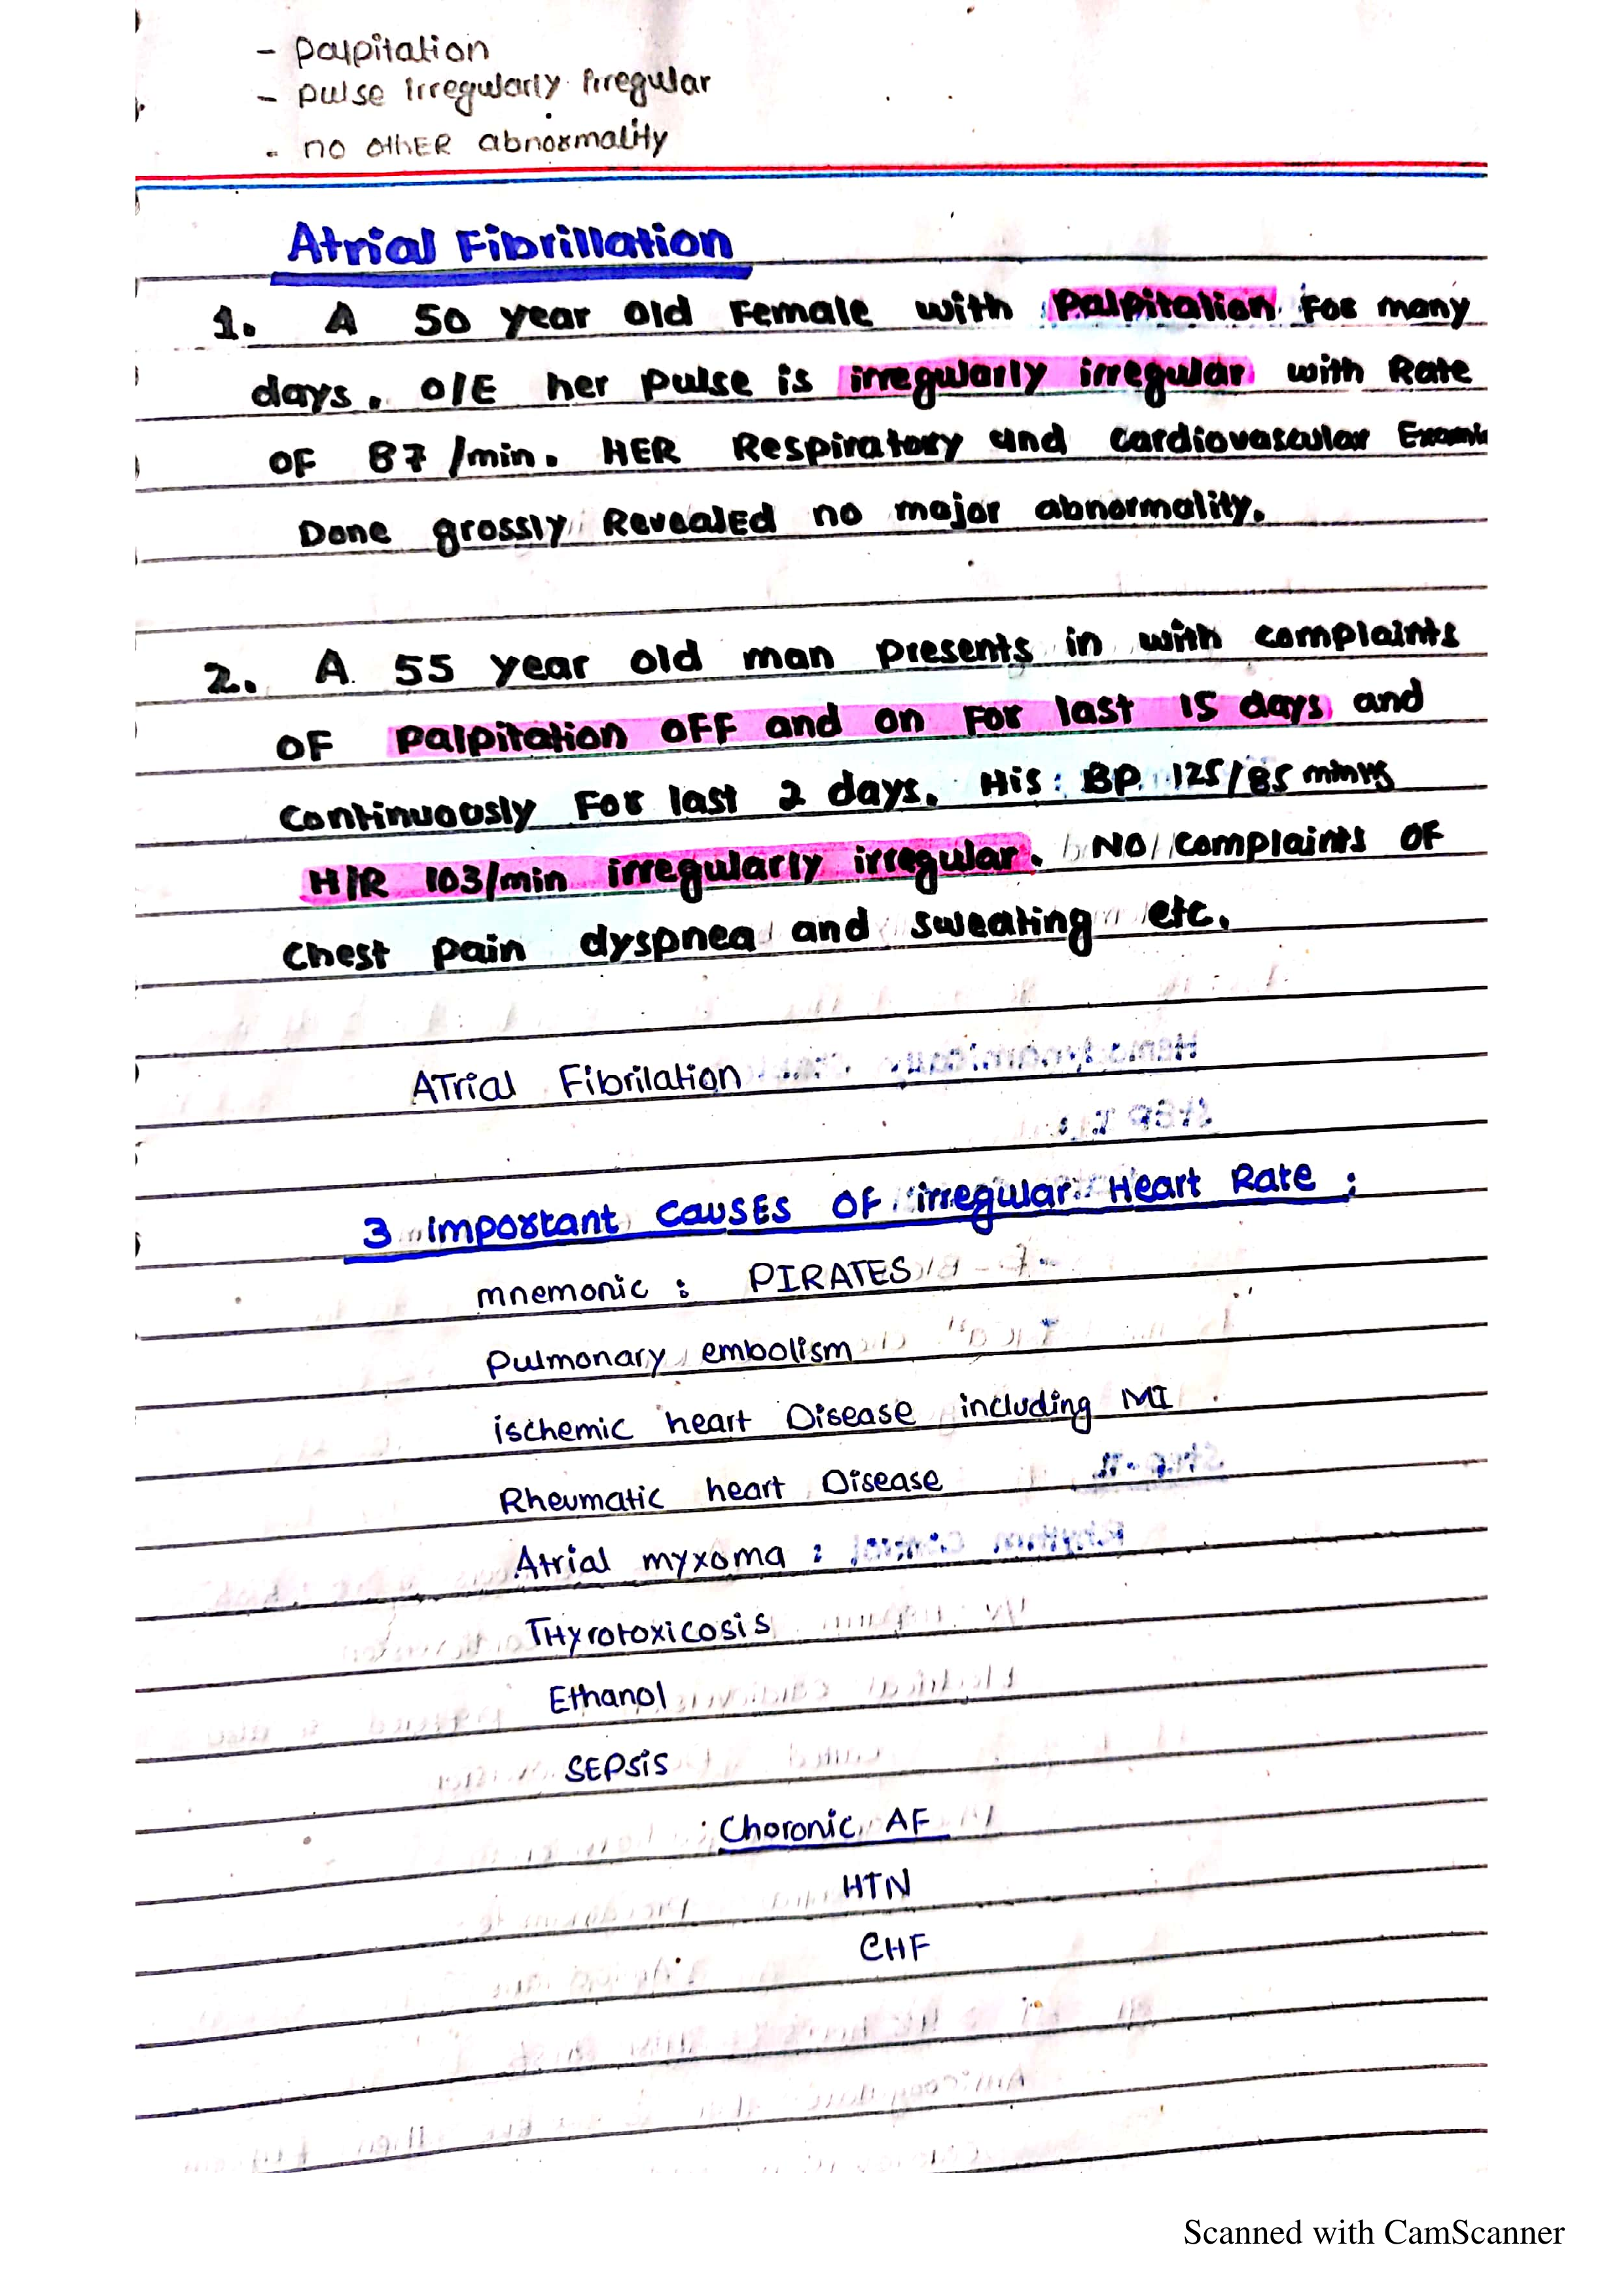 - palpitation
- pulse irregularly irregular
- no othER abnormality
Atrial Fibrillation
1. A 50 year old Female with Palpitation For many
days. O/E her pulse is irregularly irregular with Rate
OF 87/min. HER Respiratory and cardiovascular
Done grossly RevealEd no major abnormality.
2. A 55 year old man presents in with complaints
OF Palpitation OFF and on For last 15 days and
Continuously For last 2 days. His BP 125/85
H/R 103/min irregularly irregular. NO complaints OF
Chest pain dyspnea and sweating etc.
ATrial Fibrilation
3 important causEs OF irregular Heart Rate :
mnemonic : PIRATES
Pulmonary embolism
ischemic heart Disease including MI
Rheumatic heart Disease
Atrial myxoma :
THyrotoxicosis
Ethanol
SEPSiS
Choronic AF
HTN
CHF
Scanned with CamScanner